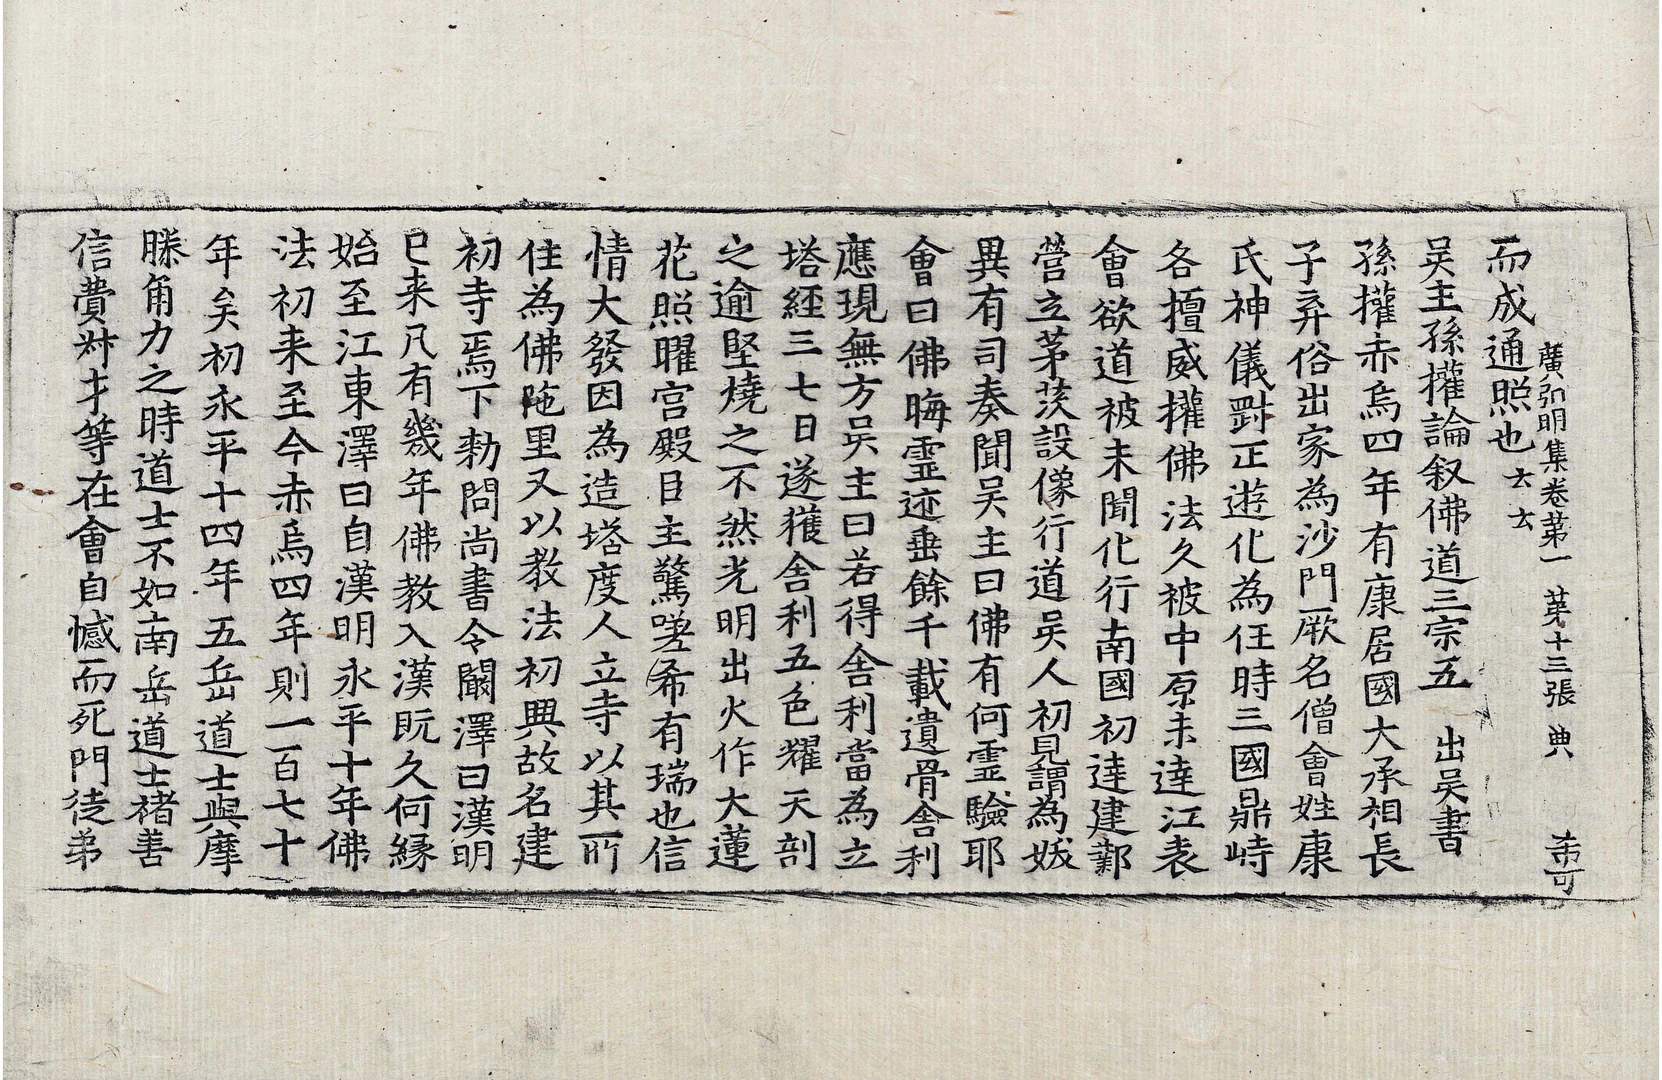 廣弘明集卷第一　第十三張　典
而成通照也云云
吴主孫權論叙佛道三宗五　出吴書
孫權赤烏四年有康居國大承相長
子弃俗出家為沙門厥名僧會姓康
氏神儀剛正遊化為任時三國鼎峙
各擅威權佛法久被中原未達江表
會欲道被未聞化行南國初達建鄴
營立茅茨設像行道吴人初見謂為妖
異有司奏聞吴主曰佛有何霊驗耶
會曰佛晦霊迹垂餘千載遺骨舎利
應現無方吴主曰若得舎利當為立
塔経三七日遂獲舎利五色耀天剖
之逾堅燒之不然光明出火作大蓮
花照曜宫殿目主驚嗟希有瑞也信
情大發因為造塔度人立寺以其所
住為佛陁里又以教法初興故名建
初寺焉下勑問尚書令闞澤曰漢明
已来凡有幾年佛教入漢既久何縁
始至江東澤曰自漢明永平十年佛
法初来至今赤烏四年則一百七十
年矣初永平十四年五岳道士與摩
騰角力之時道士不如南岳道士褚善
信費叔才等在會自憾而死門徒弟